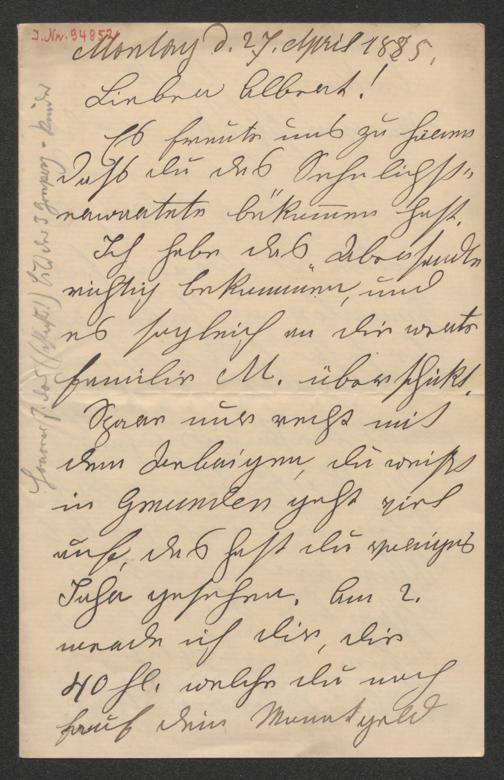 I.Nr. 94852
Montag d. 27. April 1885.
Lieber Albert!
Es freute uns zu hören
daß du das Sehnlichst-
erwartete bekommen hast.
Ich habe das Übersendte
richtig bekommen, und
es sogleich an die werte
Familie M. überschickt.
Spare nur recht mit
dem Übrigen, du weißt
in Gmunden geht viel
auf, das hast du voriges
Jahr gesehen. Am 2.
werde ich dir, die
40 fl. welche du noch
auf dein Monatgeld